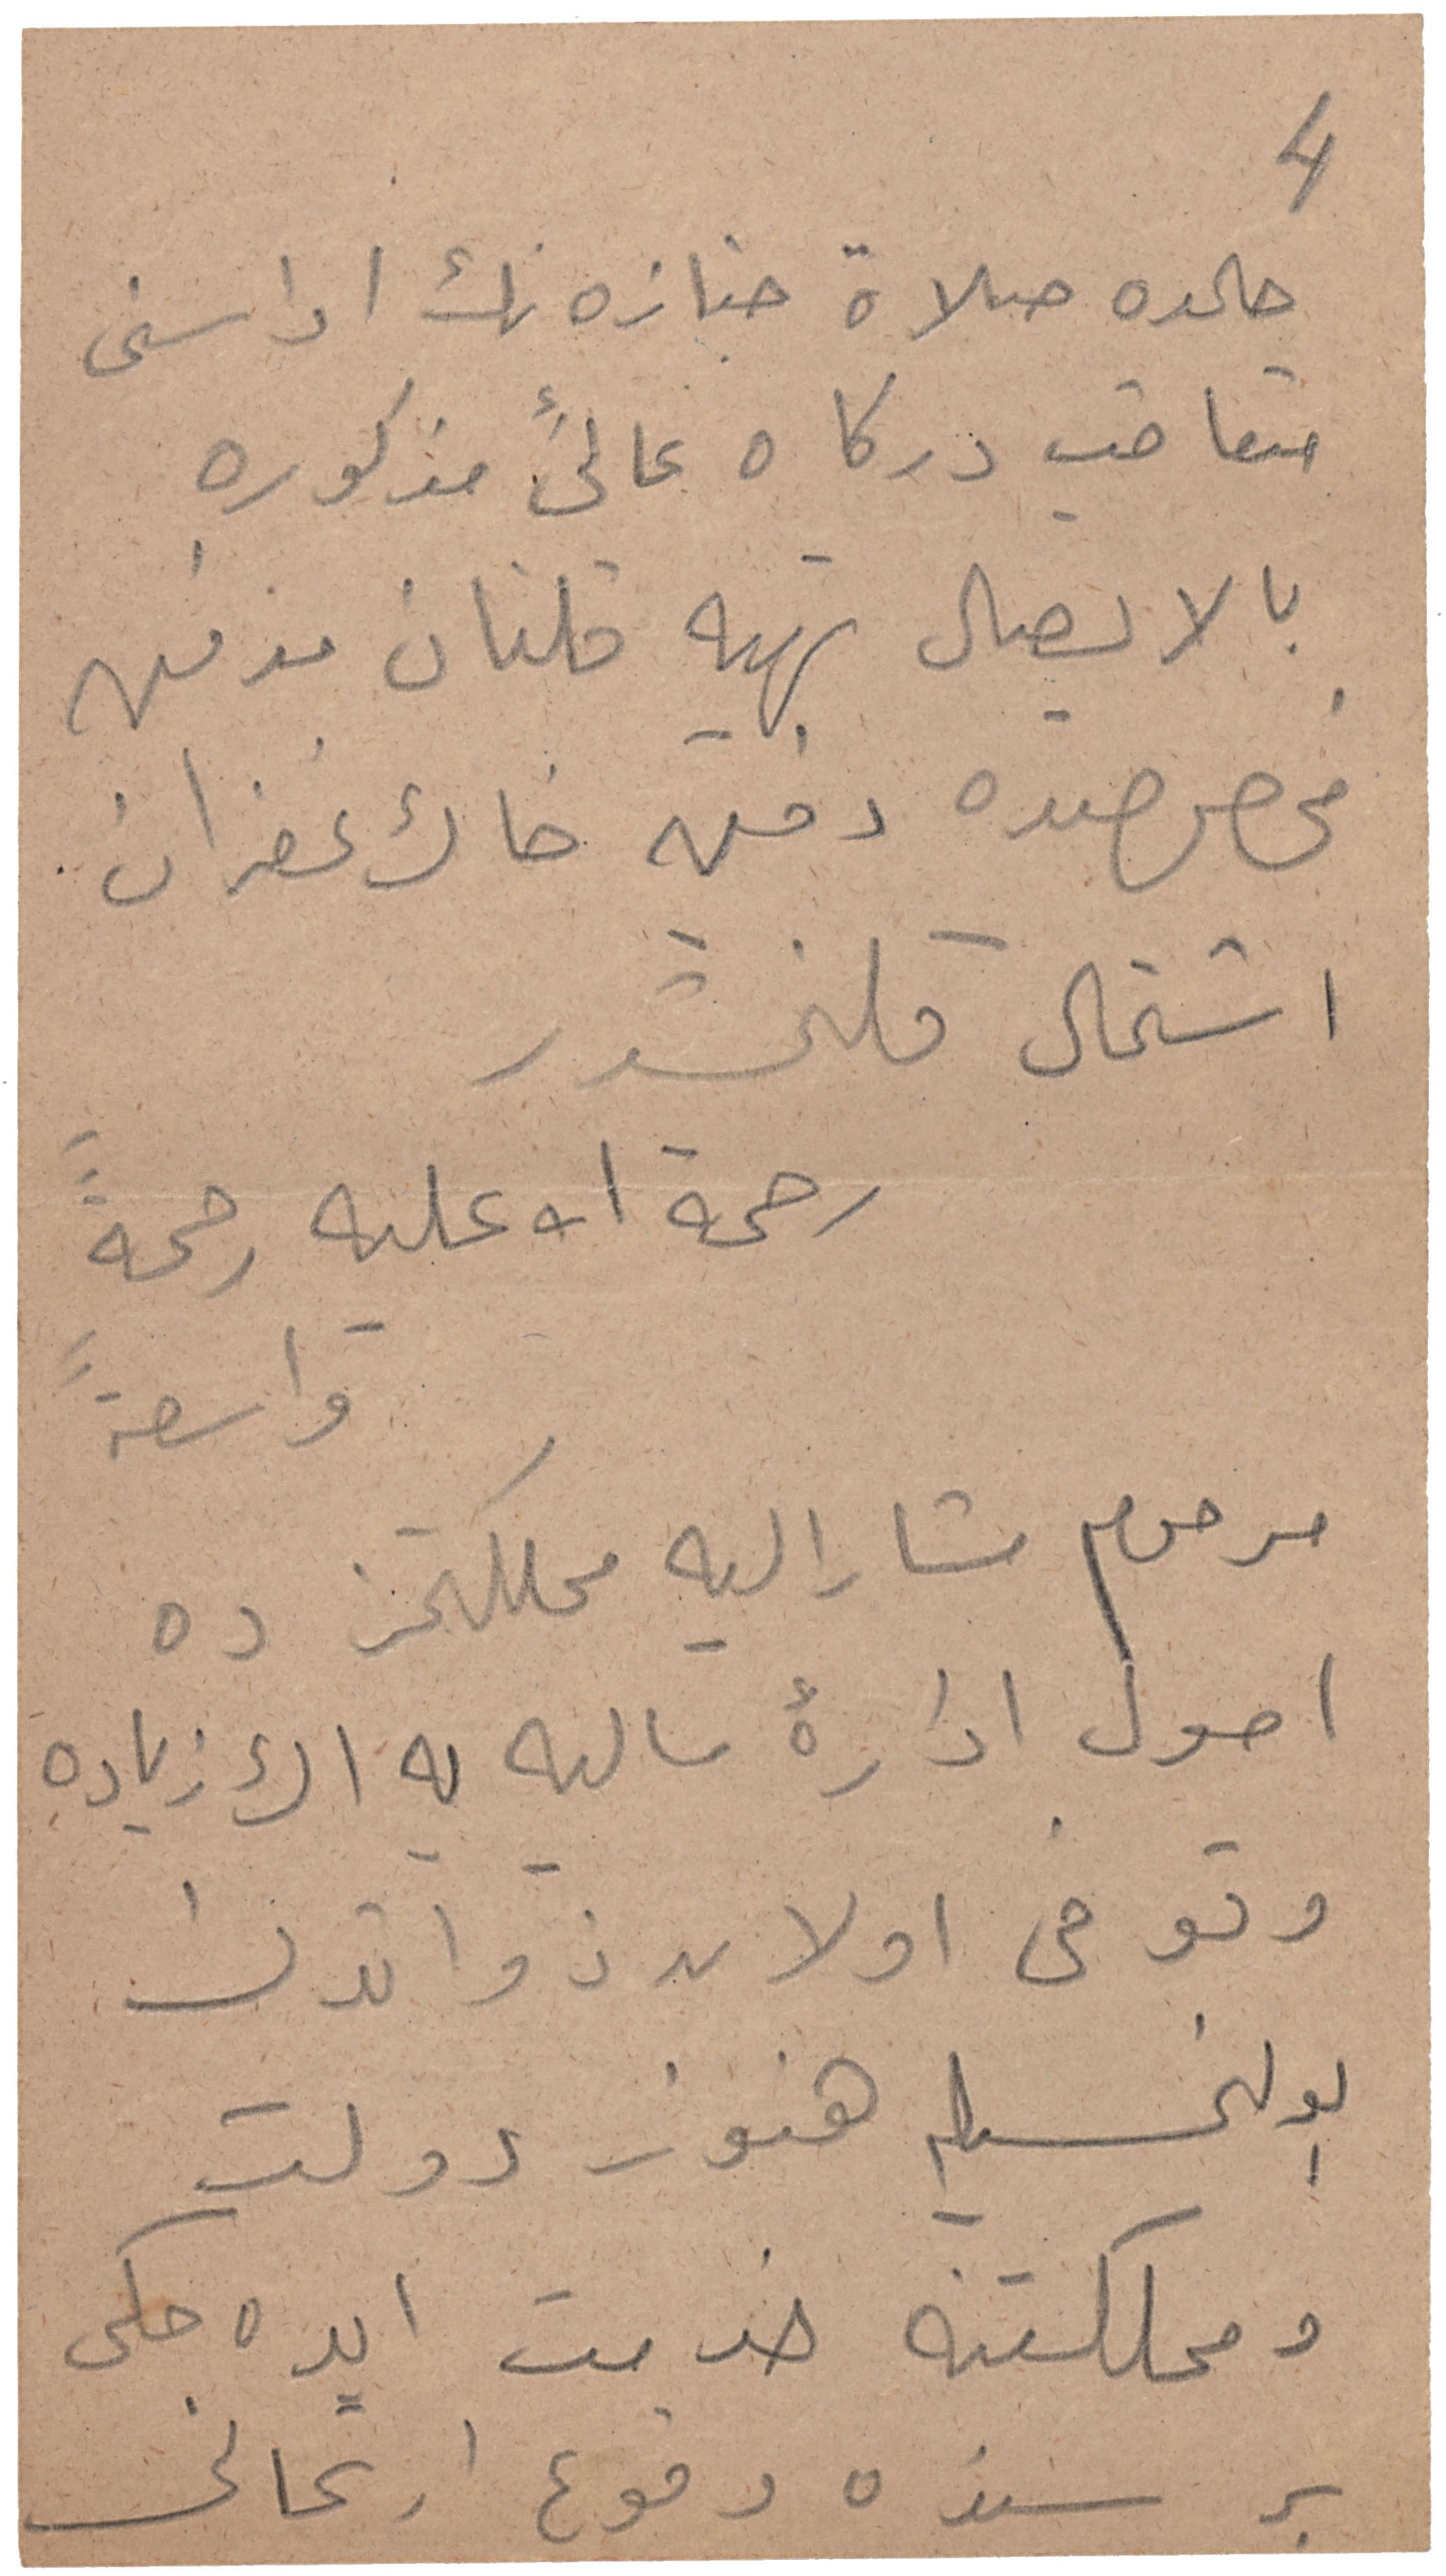 4
حالده صلاة جنازه نك اداسنى
متعاقب دركاه عالئ مذكوره
بالايصال تهيه قلنان مدفن
مخصوصنده دفين خاك غفران
اشتمال قلنمشدر
رحمة الله عليه رحمةً
واسعةً
مرحوم مشار اليه مملكتمزده
اصول ادارۀ ماليه يه اك زياده
وقوفى اولان ذواتدن
بولنمسيله هنوز دولت
ومملكتنه خدمت ايده جكى
بر سنده وقوع ارتحالى